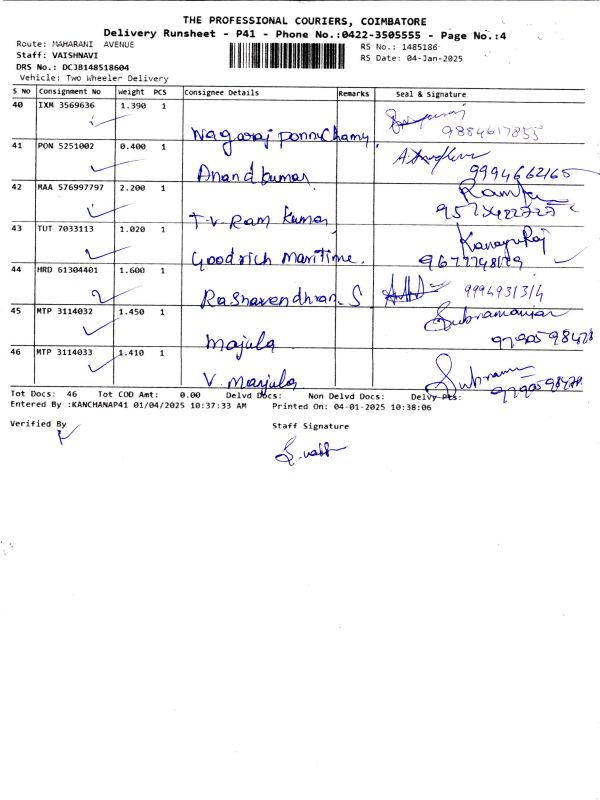 THE PROFESSIONAL COURIERS, COIMBATORE
Delivery Runsheet - P41 - Phone No.:0422-3505555 - Page No.:4
Route: MAHARANI AVENUE
RS No.: 1485186
Staff: VAISHNAVI
RS Date: 04-Jan-2025
DRS No.: DCJB148518604
Vehicle: Two Wheeler Delivery
S No Consignment No Weight PCS Consignee Details Remarks Seal & Signature
40 IXM 3569636 1.390 1
Nagaraj Ponnuchamy 9884617855
41 PON 5251002 0.400 1
Anand kumar 9994662165
42 MAA 576997797 2.200 1
T.V. Ram Kumar
43 TUT 7033113 1.020 1
Goodrich Maritime. KanagaRaj
44 HRD 61304401 1.600 1
Raghavendhran. S 9994931314
45 MTP 3114032 1.450 1
Majula Subramanian 9790598478
46 MTP 3114033 1.410 1
V. Manjula 9790598478
Tot Docs: 46 Tot COD Amt: 0.00 Delvd Docs: Non Delvd Docs: Delvy Pts:
Entered By :KANCHANAP41 01/04/2025 10:37:33 AM Printed On: 04-01-2025 10:38:06
Verified By Staff Signature